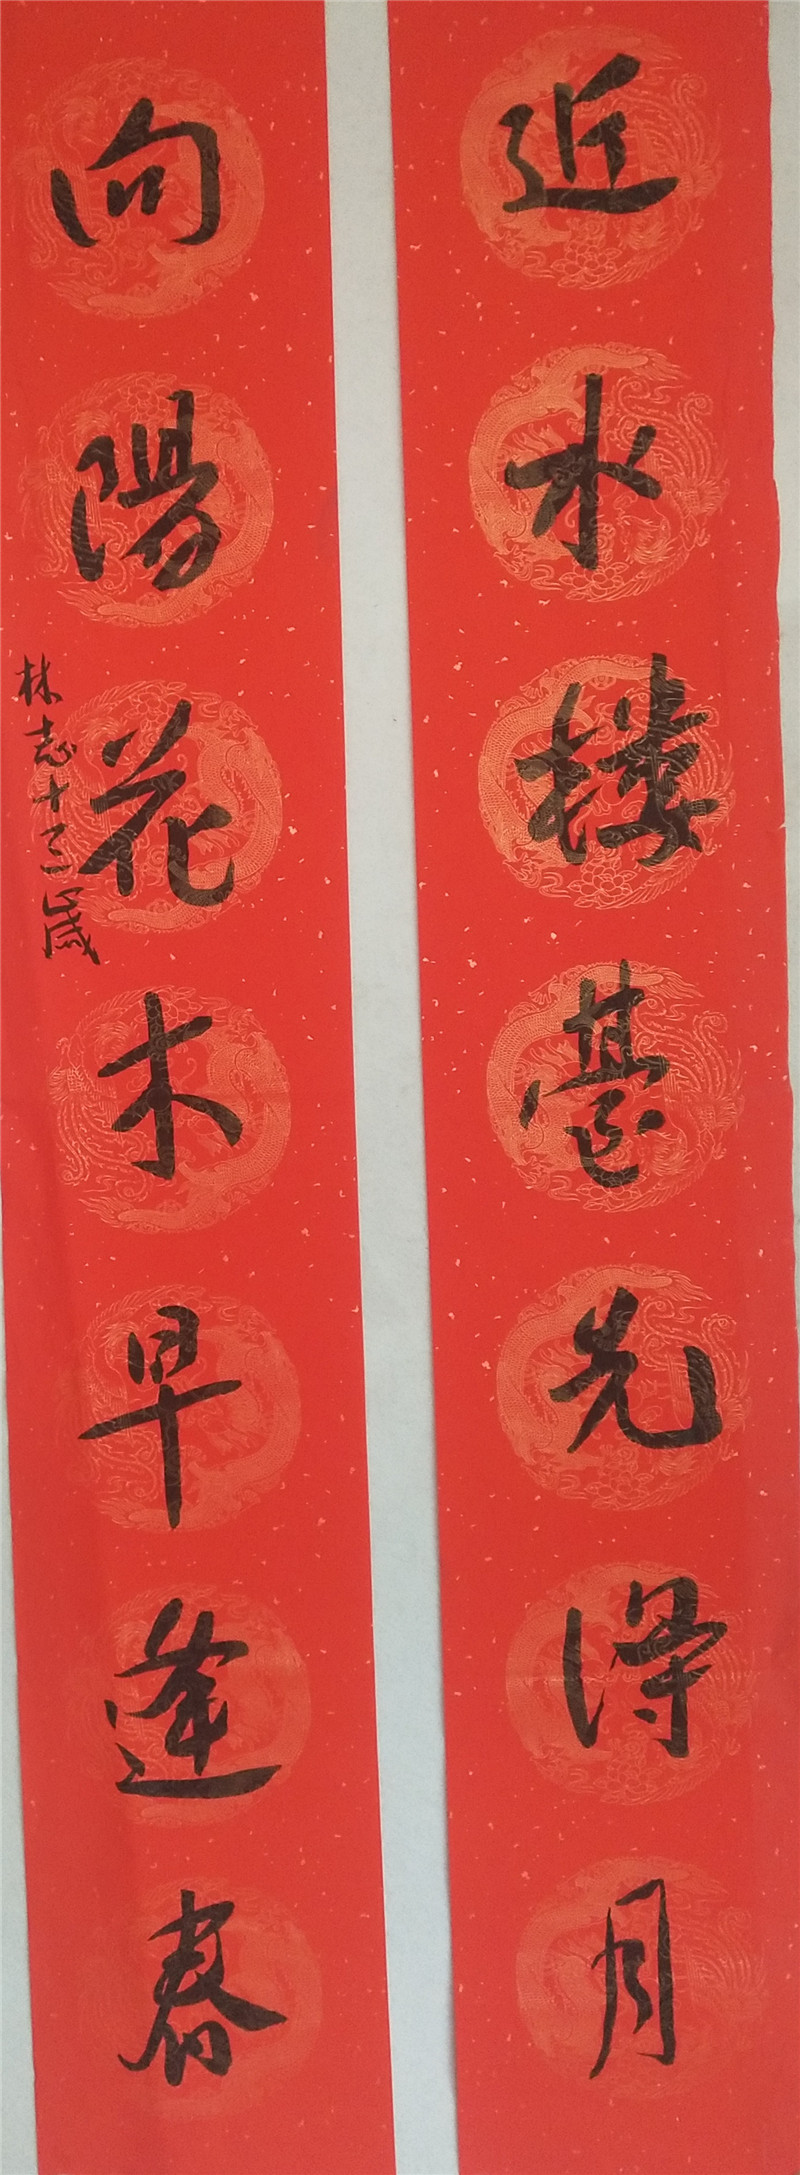 近水楼臺先得月
向陽花木早逢春
林志十三歲